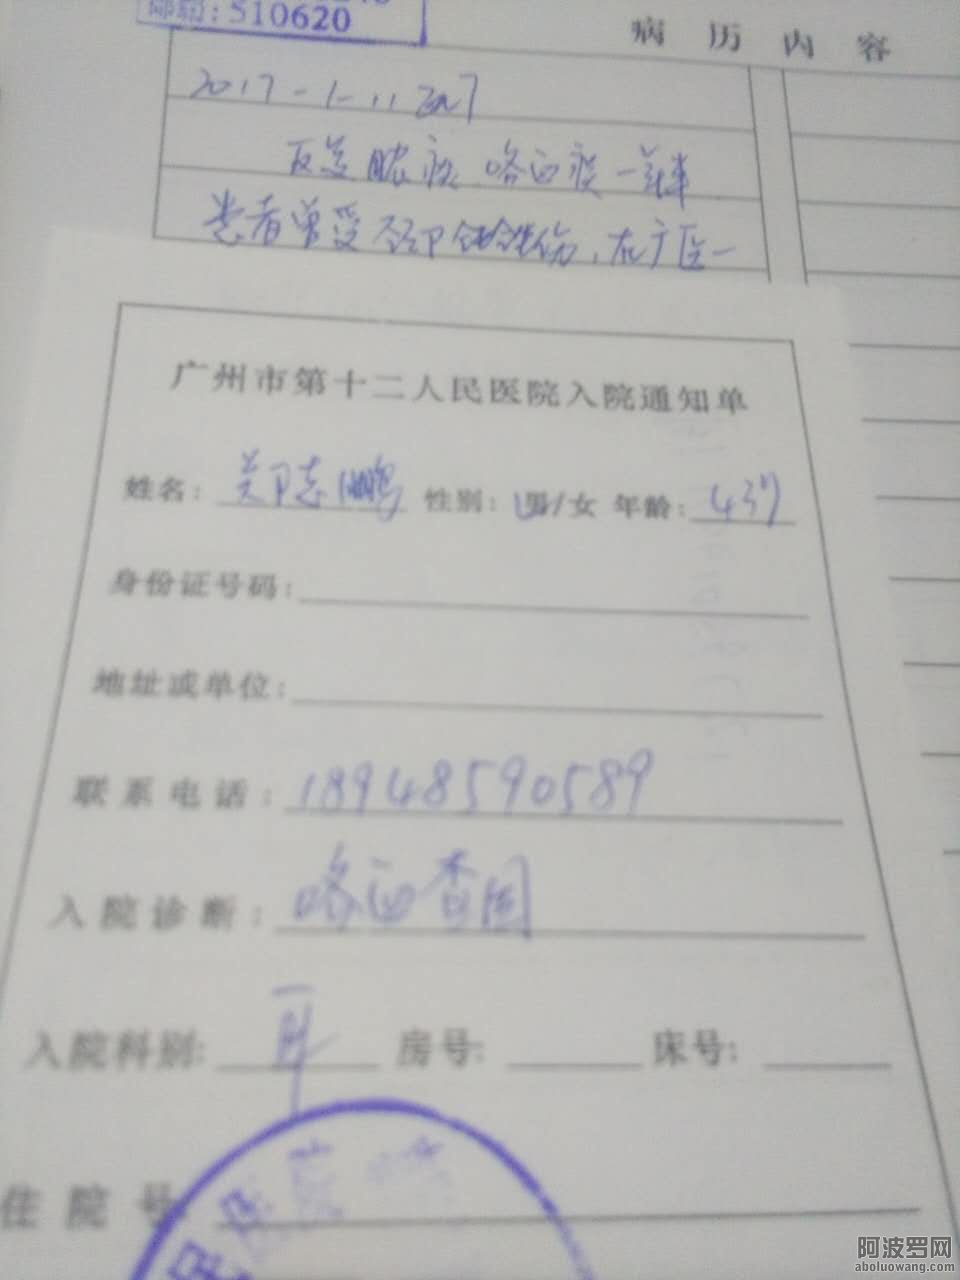 邮编:510620
病历内容
2017-1-11
反复脓痰 咯血痰一年半
患者曾受 伤,在广医一
广州市第十二人民医院入院通知单
姓名: 志鹏 性别: 男/女 年龄: 43岁
身份证号码:
地址或单位:
联系电话: 18948590589
入院诊断: 咯血查因
入院科别: 房号: 床号:
住院号
民医院
阿波罗网
aboluowang.com